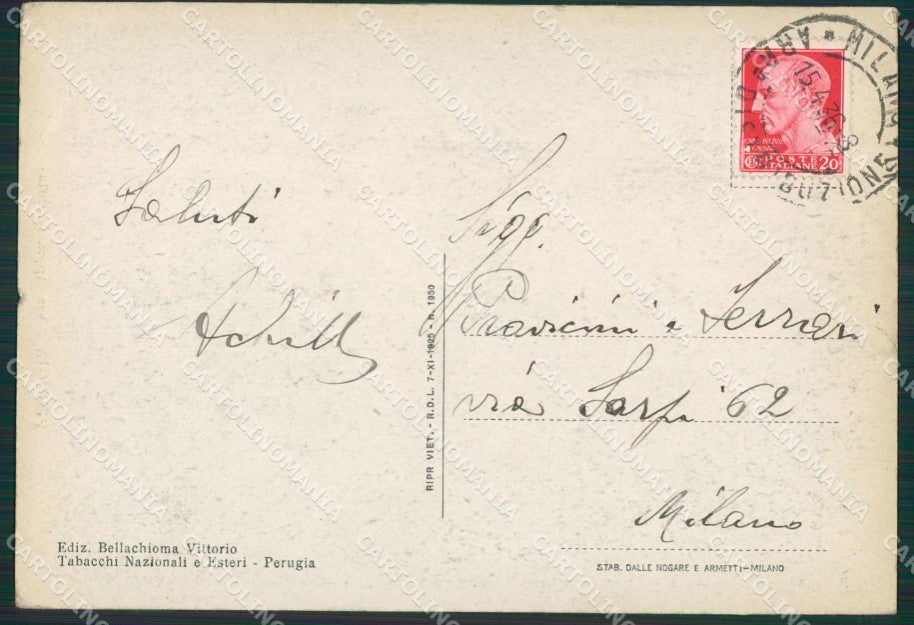 Saluti
Achille
Sigg.
Pravicini e Ferrari
via Sarpi 62
Milano
Ediz. Bellachioma Vittorio
Tabacchi Nazionali e Esteri - Perugia
RIPR VIET. - R.D.L. 7-XI-1925 - N. 1950
STAB. DALLE NOGARE E ARMETTI-MILANO
POSTE
ITALIANE 20
MILANO
DISTRIBUZIONE
15.4.36
CARTOLINOMANIA